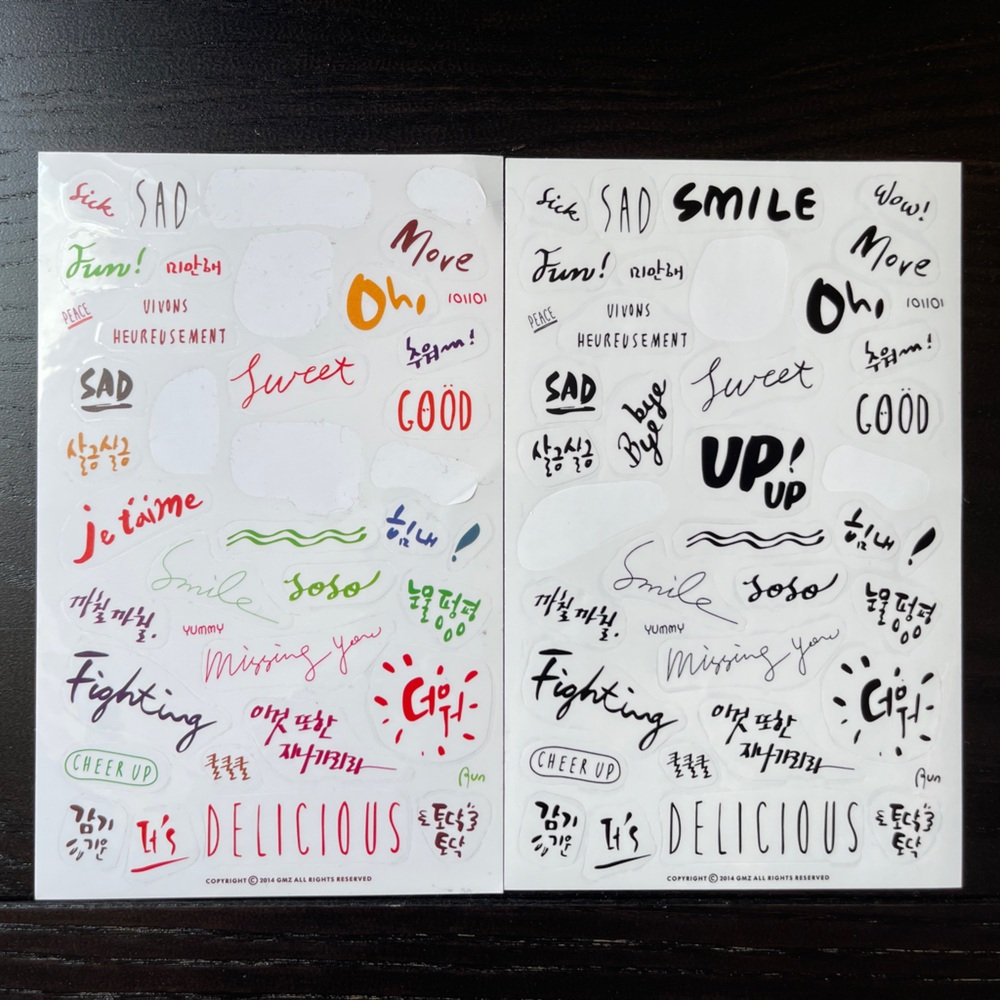 Sick
SAD
Fun!
미안해
More
PEACE
VIVONS
HEUREUSEMENT
Oh,
101101
추워!
SAD
Sweet
GOOD
살금살금
je t'aime
힘내!
Smile
soso
까칠까칠.
눈물 펑펑
YUMMY
Missing you
Fighting
이것 또한
지나가리라
더워
CHEER UP
쿨쿨쿨
Run
감기
기운
It's
DELICIOUS
토닥
토닥
COPYRIGHT © 2014 GMZ ALL RIGHTS RESERVED
Sick
SAD
SMILE
Wow!
Fun!
미안해
More
PEACE
VIVONS
HEUREUSEMENT
Oh,
101101
추워!
SAD
Bye
bye
Sweet
GOÖD
살금살금
UP!
UP
힘내!
Smile
soso
까칠까칠.
눈물 펑펑
YUMMY
Missing you
Fighting
이것 또한
지나가리라
더워
CHEER UP
쿨쿨쿨
Run
감기
기운
It's
DELICIOUS
토닥
토닥
COPYRIGHT © 2014 GMZ ALL RIGHTS RESERVED